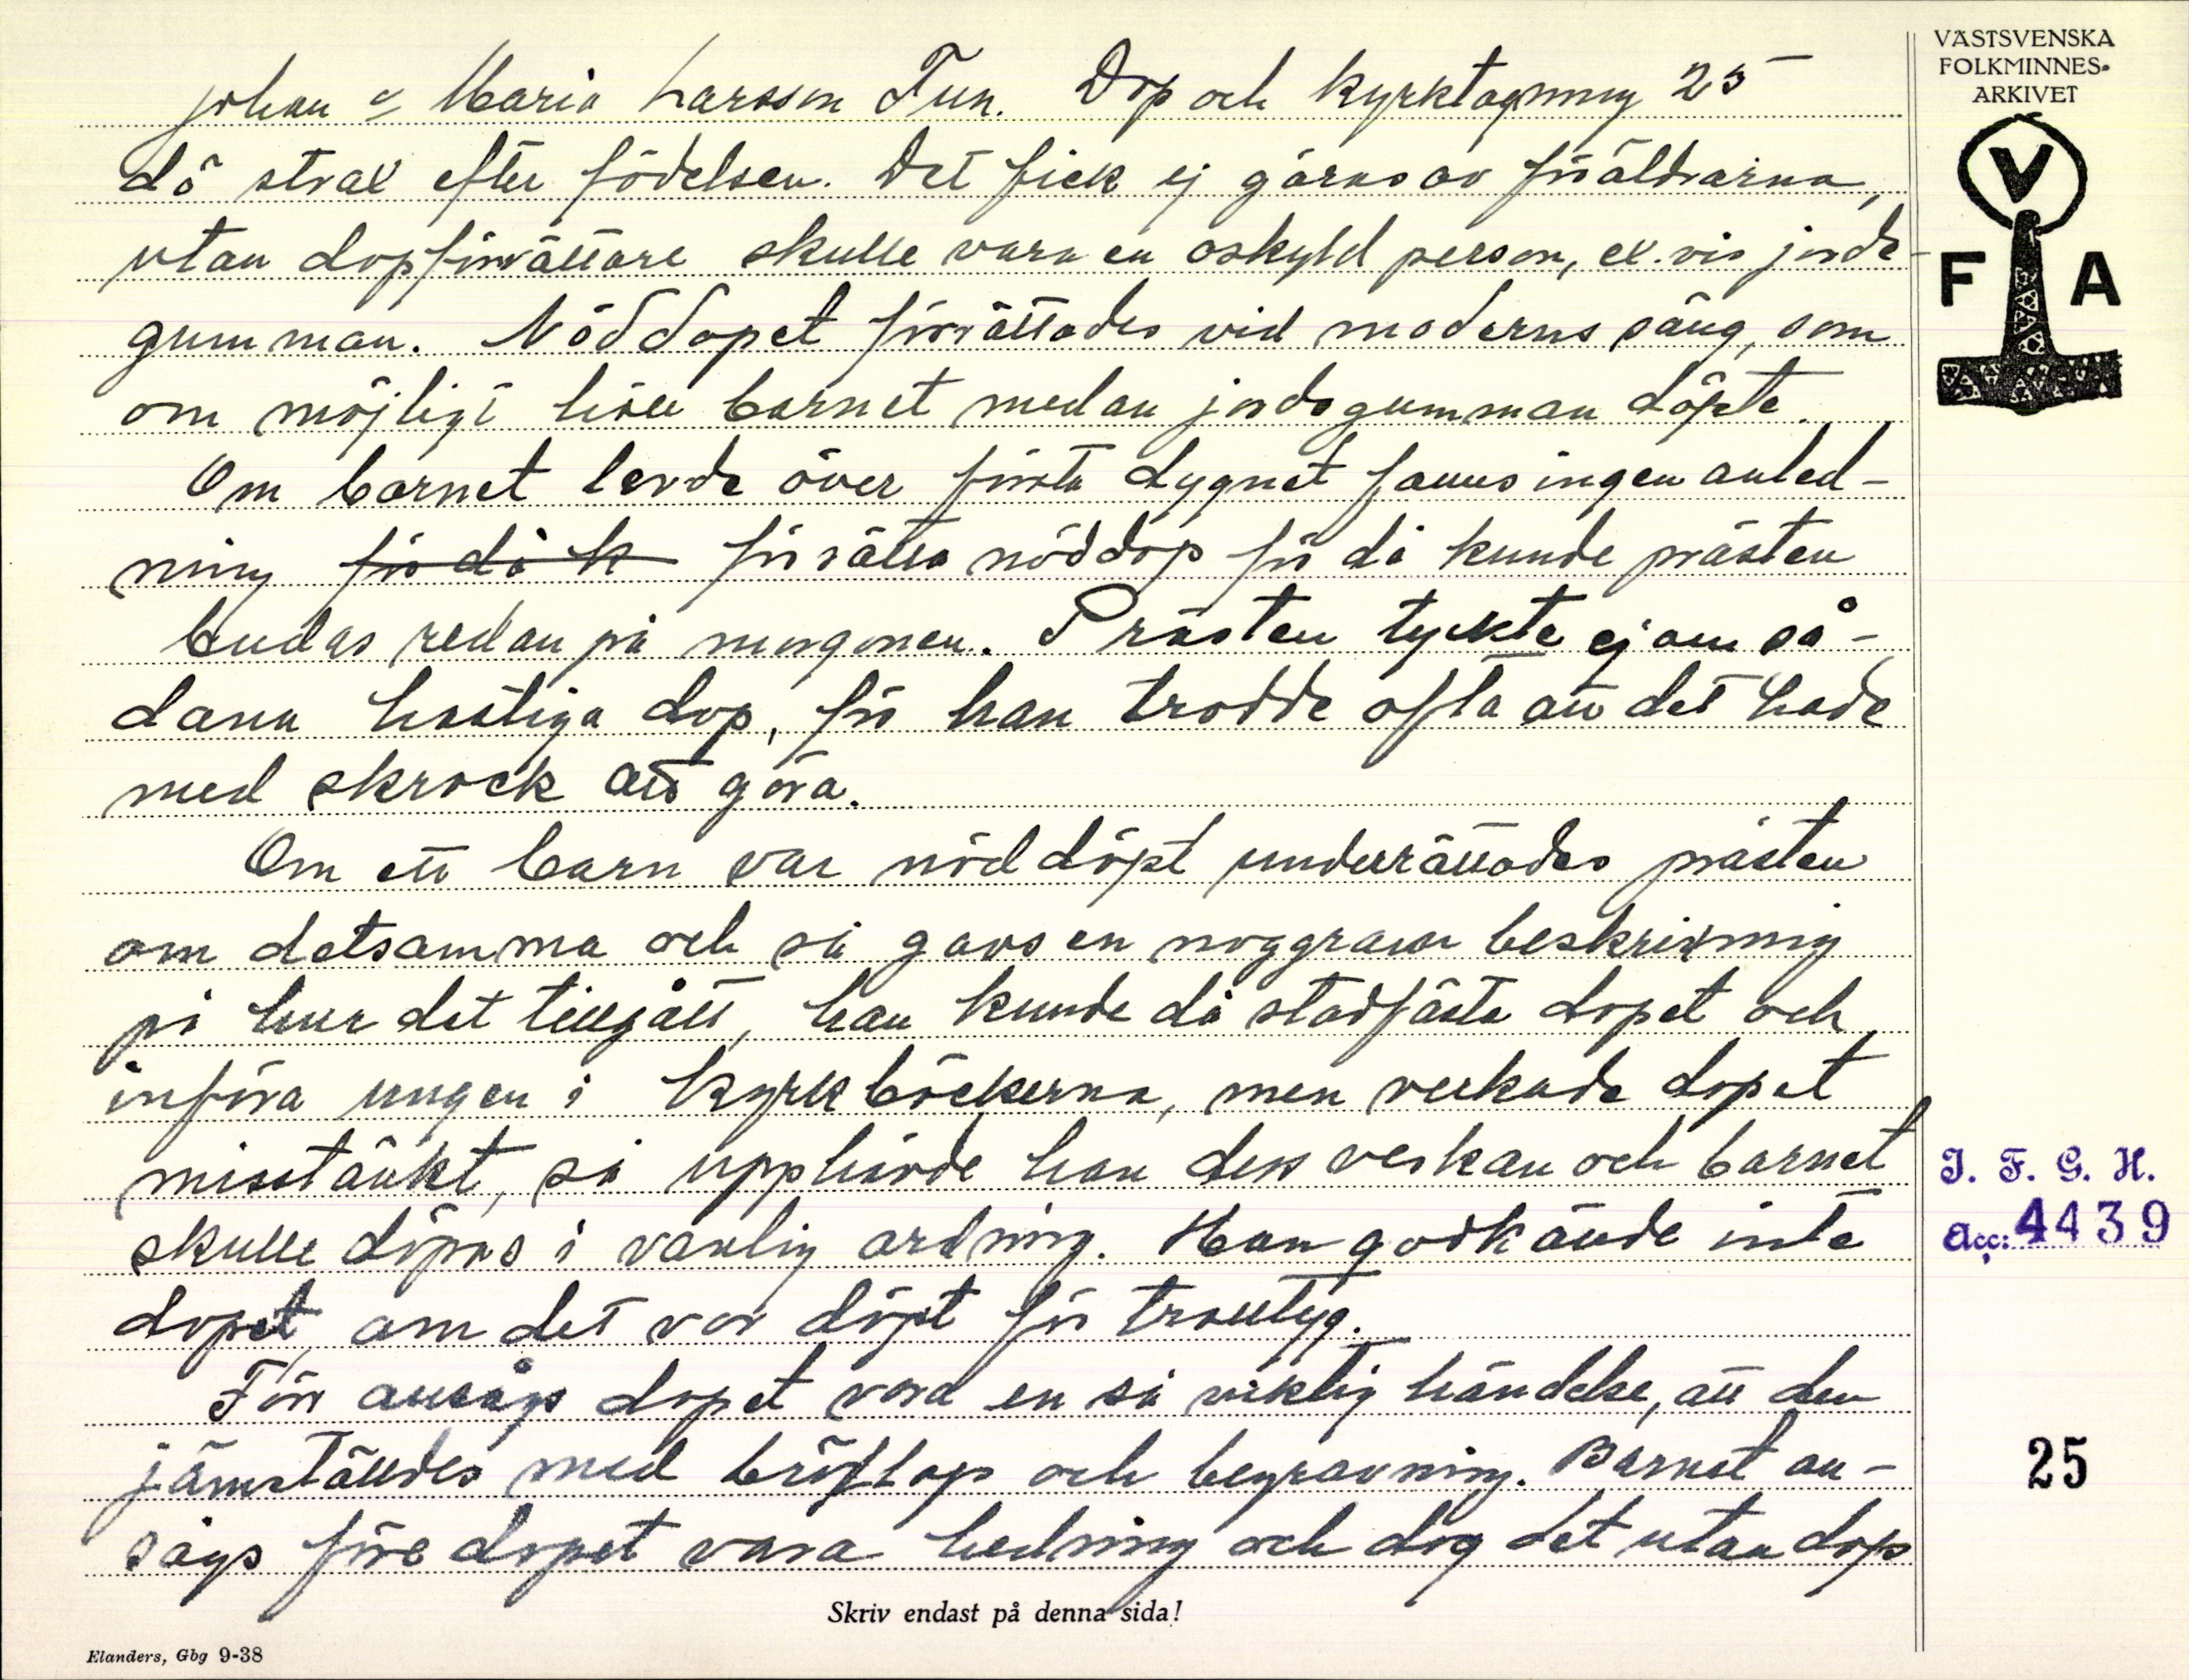 Johan & Maria Larsson Tun. Dop och kyrktagning 25
dö strax efter födelsen. Det fick ej göras av föräldrarna,
utan dopförrättare skulle vara en oskyld person, ex.vis jorde-
gumman. Nöddopet förrättades vid moderns säng, som
om möjligt höll barnet medan jordegumman döpte.
Om barnet levde över första dygnet fanns ingen anled-
ning för då k förrätta nöddop för då kunde prästen
budas redan på morgonen. Prästen tyckte ej om så-
dana hastiga dop, för han trodde ofta att det hade
med skrock att göra.
Om ett barn var nöddöpt underrättades prästen
om detsamma och så gavs en noggrann beskrivning
på hur det tillgått, han kunde då stadfästa dopet och
införa ungen i kyrkböckerna, men verkade dopet
misstänkt, så upphävde han dess verkan och barnet
skulle döpas i vanlig ordning. Han godkände inte
dopet om det var döpt för trolltyg.
Förr ansågs dopet vara en så viktig händelse, att den
jämställdes med bröllop och begravning. Barnet an-
sågs före dopet vara hedning och dog det utan dop
Skriv endast på denna sida!
Elanders, Gbg 9-38
VÄSTSVENSKA
FOLKMINNES-
ARKIVET
V
F A
I. F. G. H.
Acc: 4439
25